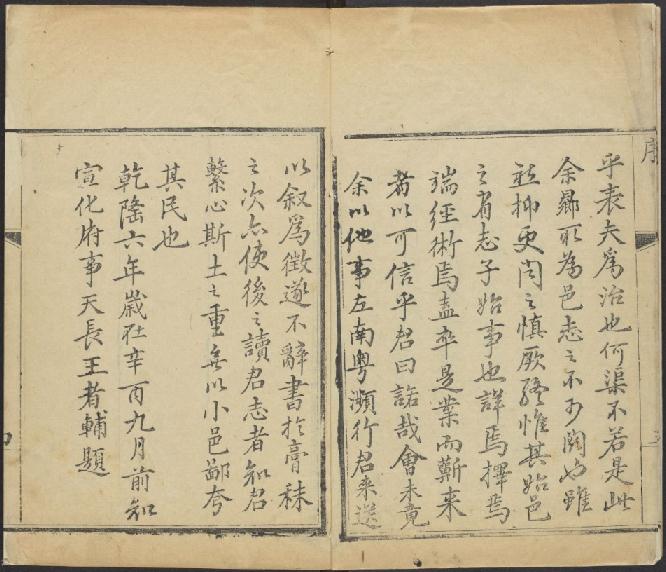 序
乎表夫爲治也何渠不若是此
余歸所為邑志之不可闕也雖
然抑更聞之慎厥終惟其始邑
之有志子始事也詳焉擇焉
端經術焉盍卒是業而蘄来
者以可信乎君曰諾哉會未竟
余以他事左南粤瀕行君来送
以叙爲徵遂不辭書於膏秣
之次亦使後之讀君志者知君
繫心斯土之重無以小邑鄙夸
其民也
乾隆六年歲在辛酉九月前知
宣化府事天長王者輔題